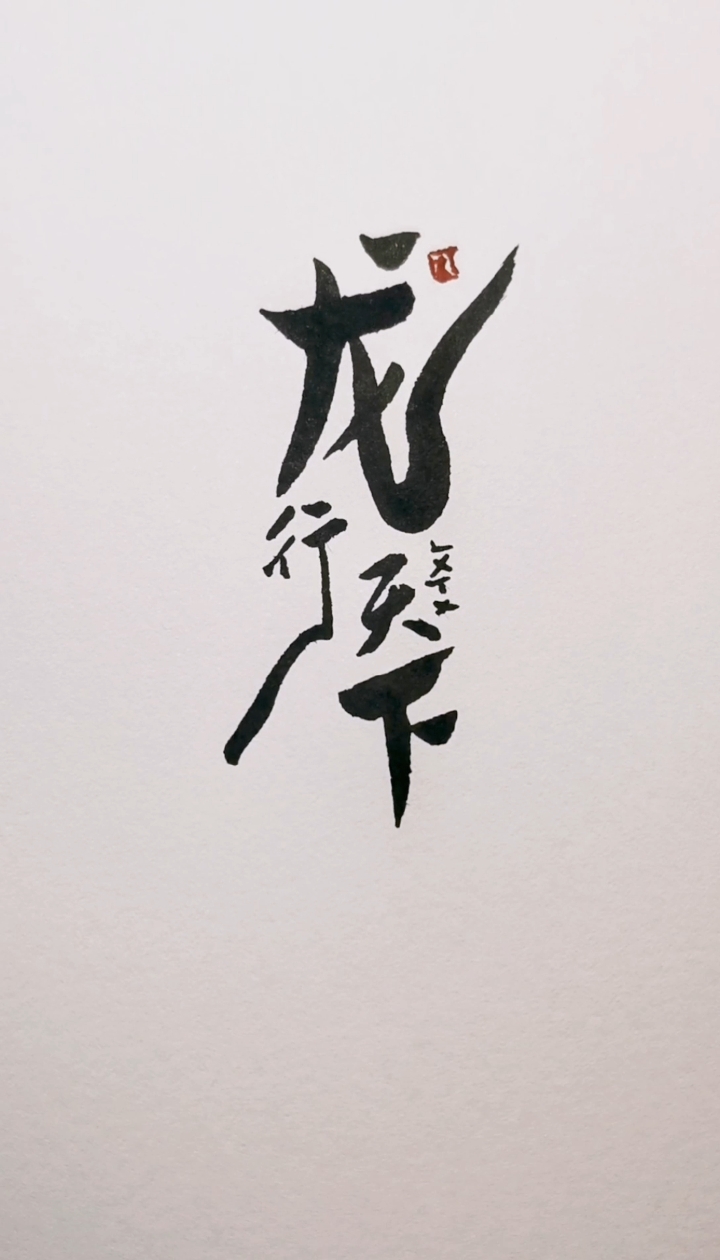 龙
行
天
下